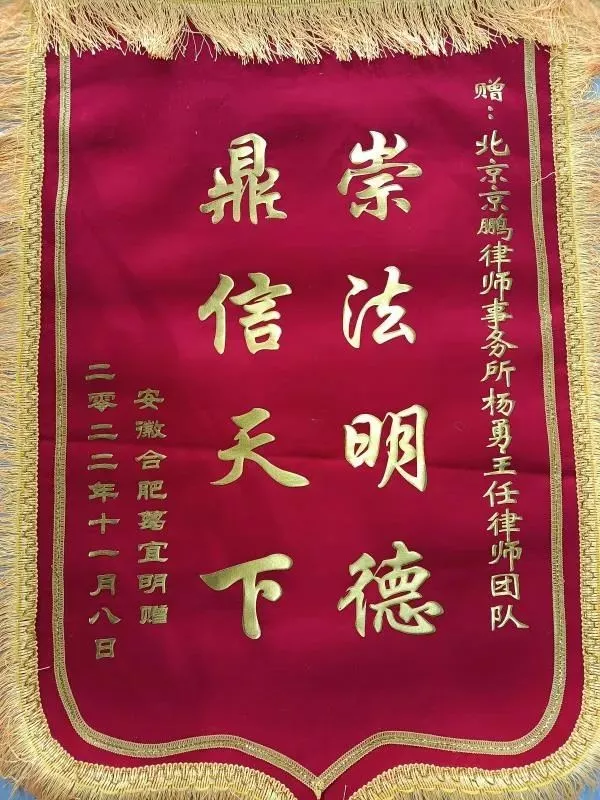 赠：北京京鹏律师事务所杨勇主任律师团队
崇法明德
鼎信天下
安徽合肥葛宜明赠
二零二二年十一月八日